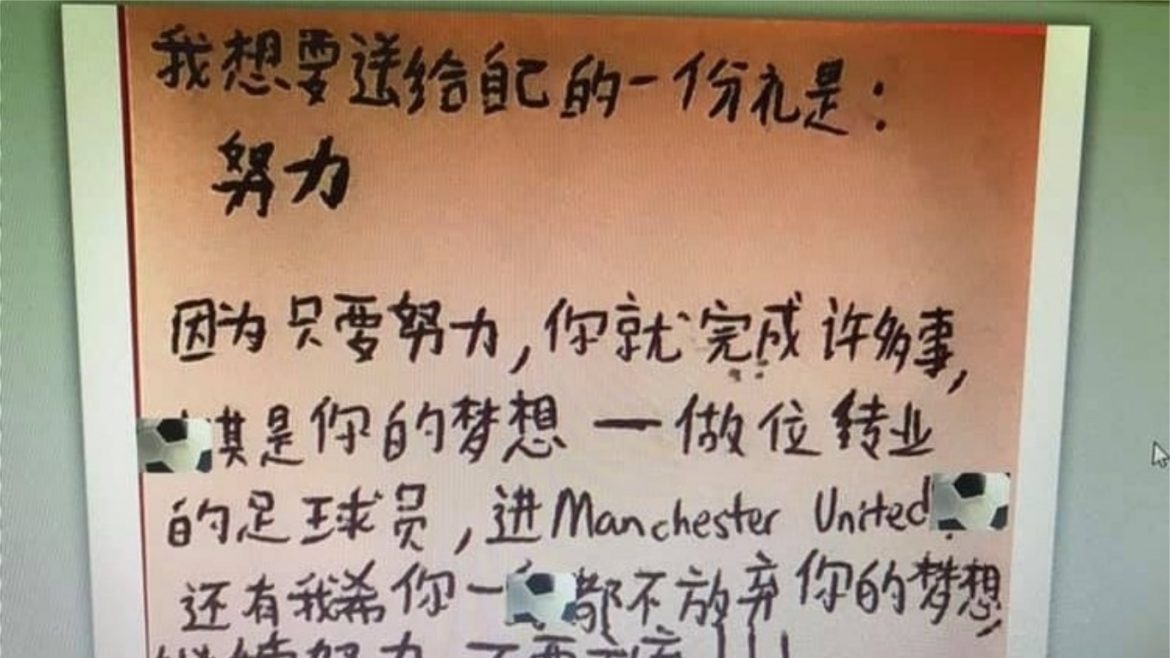 我想要送给自己的一份礼是：
努力
因为只要努力，你就完成许多事，
其是你的梦想 — 做位转业
的足球员，进Manchester United
还有我希你一 都不放弃你的梦想，
继续努力 不要